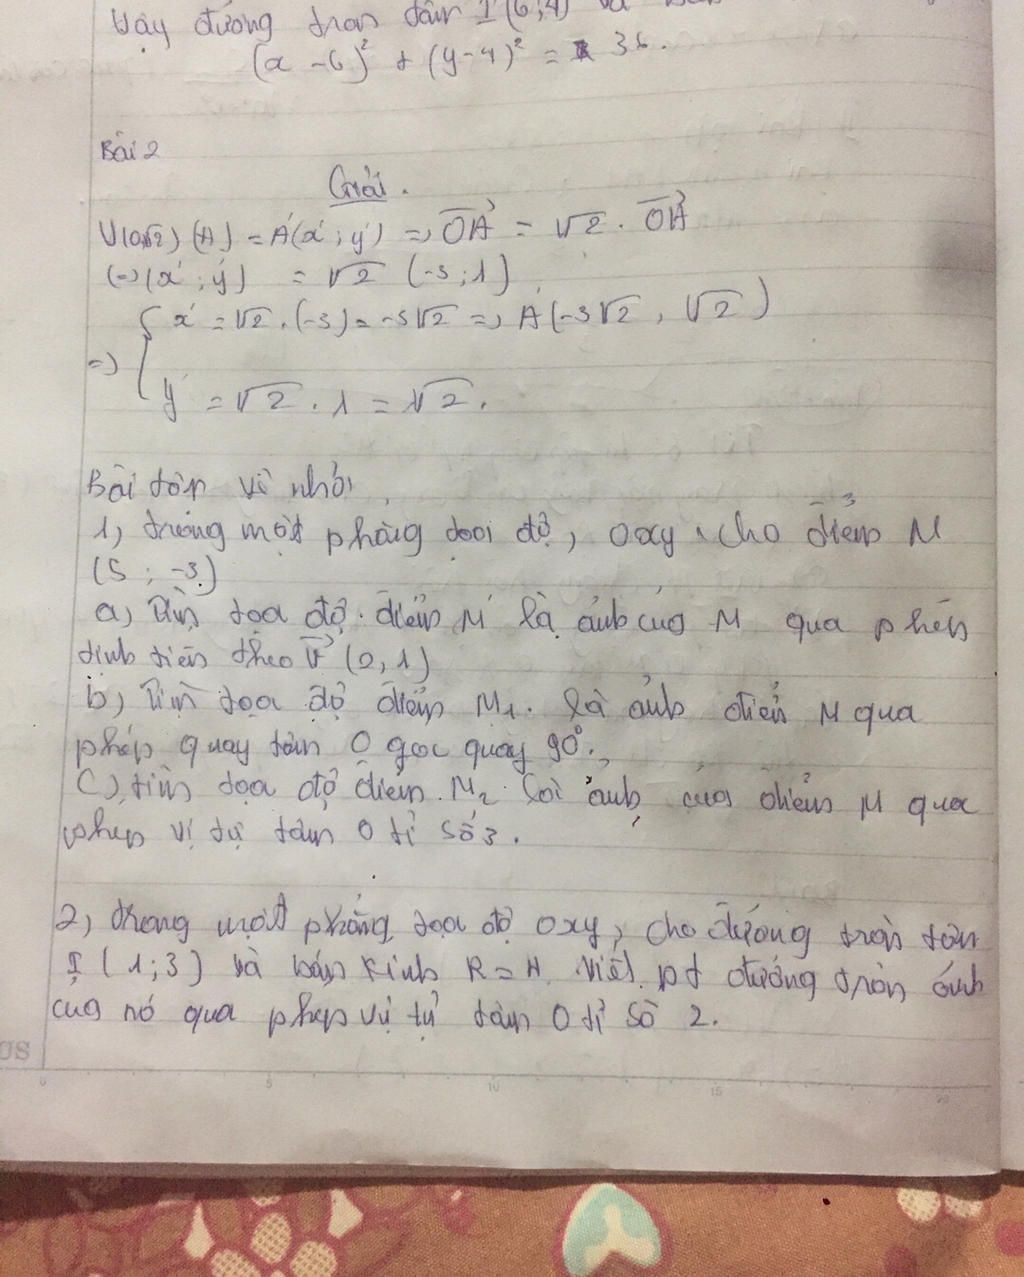 Vậy đường tròn tâm I (6;4) và
(x - 6)² + (y-4)² = 36.
Bài 2
Giải.
V(O,√2) (A) = A'(x'; y') => OA' = √2 . OA
(=> (x'; y') = √2 (-3; 1)
x' = √2 . (-3) = -3√2 => A'(-3√2, √2)
=> {
y' = √2 . 1 = √2.
Bài tập về nhà
1, trong mặt phẳng tọa độ, oxy, cho điểm M
(5 ; -3)
a, Tìm tọa độ. điểm M' là ảnh của M qua phép
tịnh tiến theo v (2, 1)
b, Tìm tọa độ điểm M1. là ảnh điểm M qua
phép quay tâm O góc quay 90°.,
C), tìm tọa độ điểm. M2. là ảnh của điểm M qua
phép vị tự tâm O tỉ số 3.
2, trong mặt phẳng tọa độ oxy, cho đường tròn tâm
I (1;3) và bán kính R = 4. Viết. pt đường tròn ảnh
của nó qua phép vị tự tâm O tỉ số 2.
0 5 10 15 20